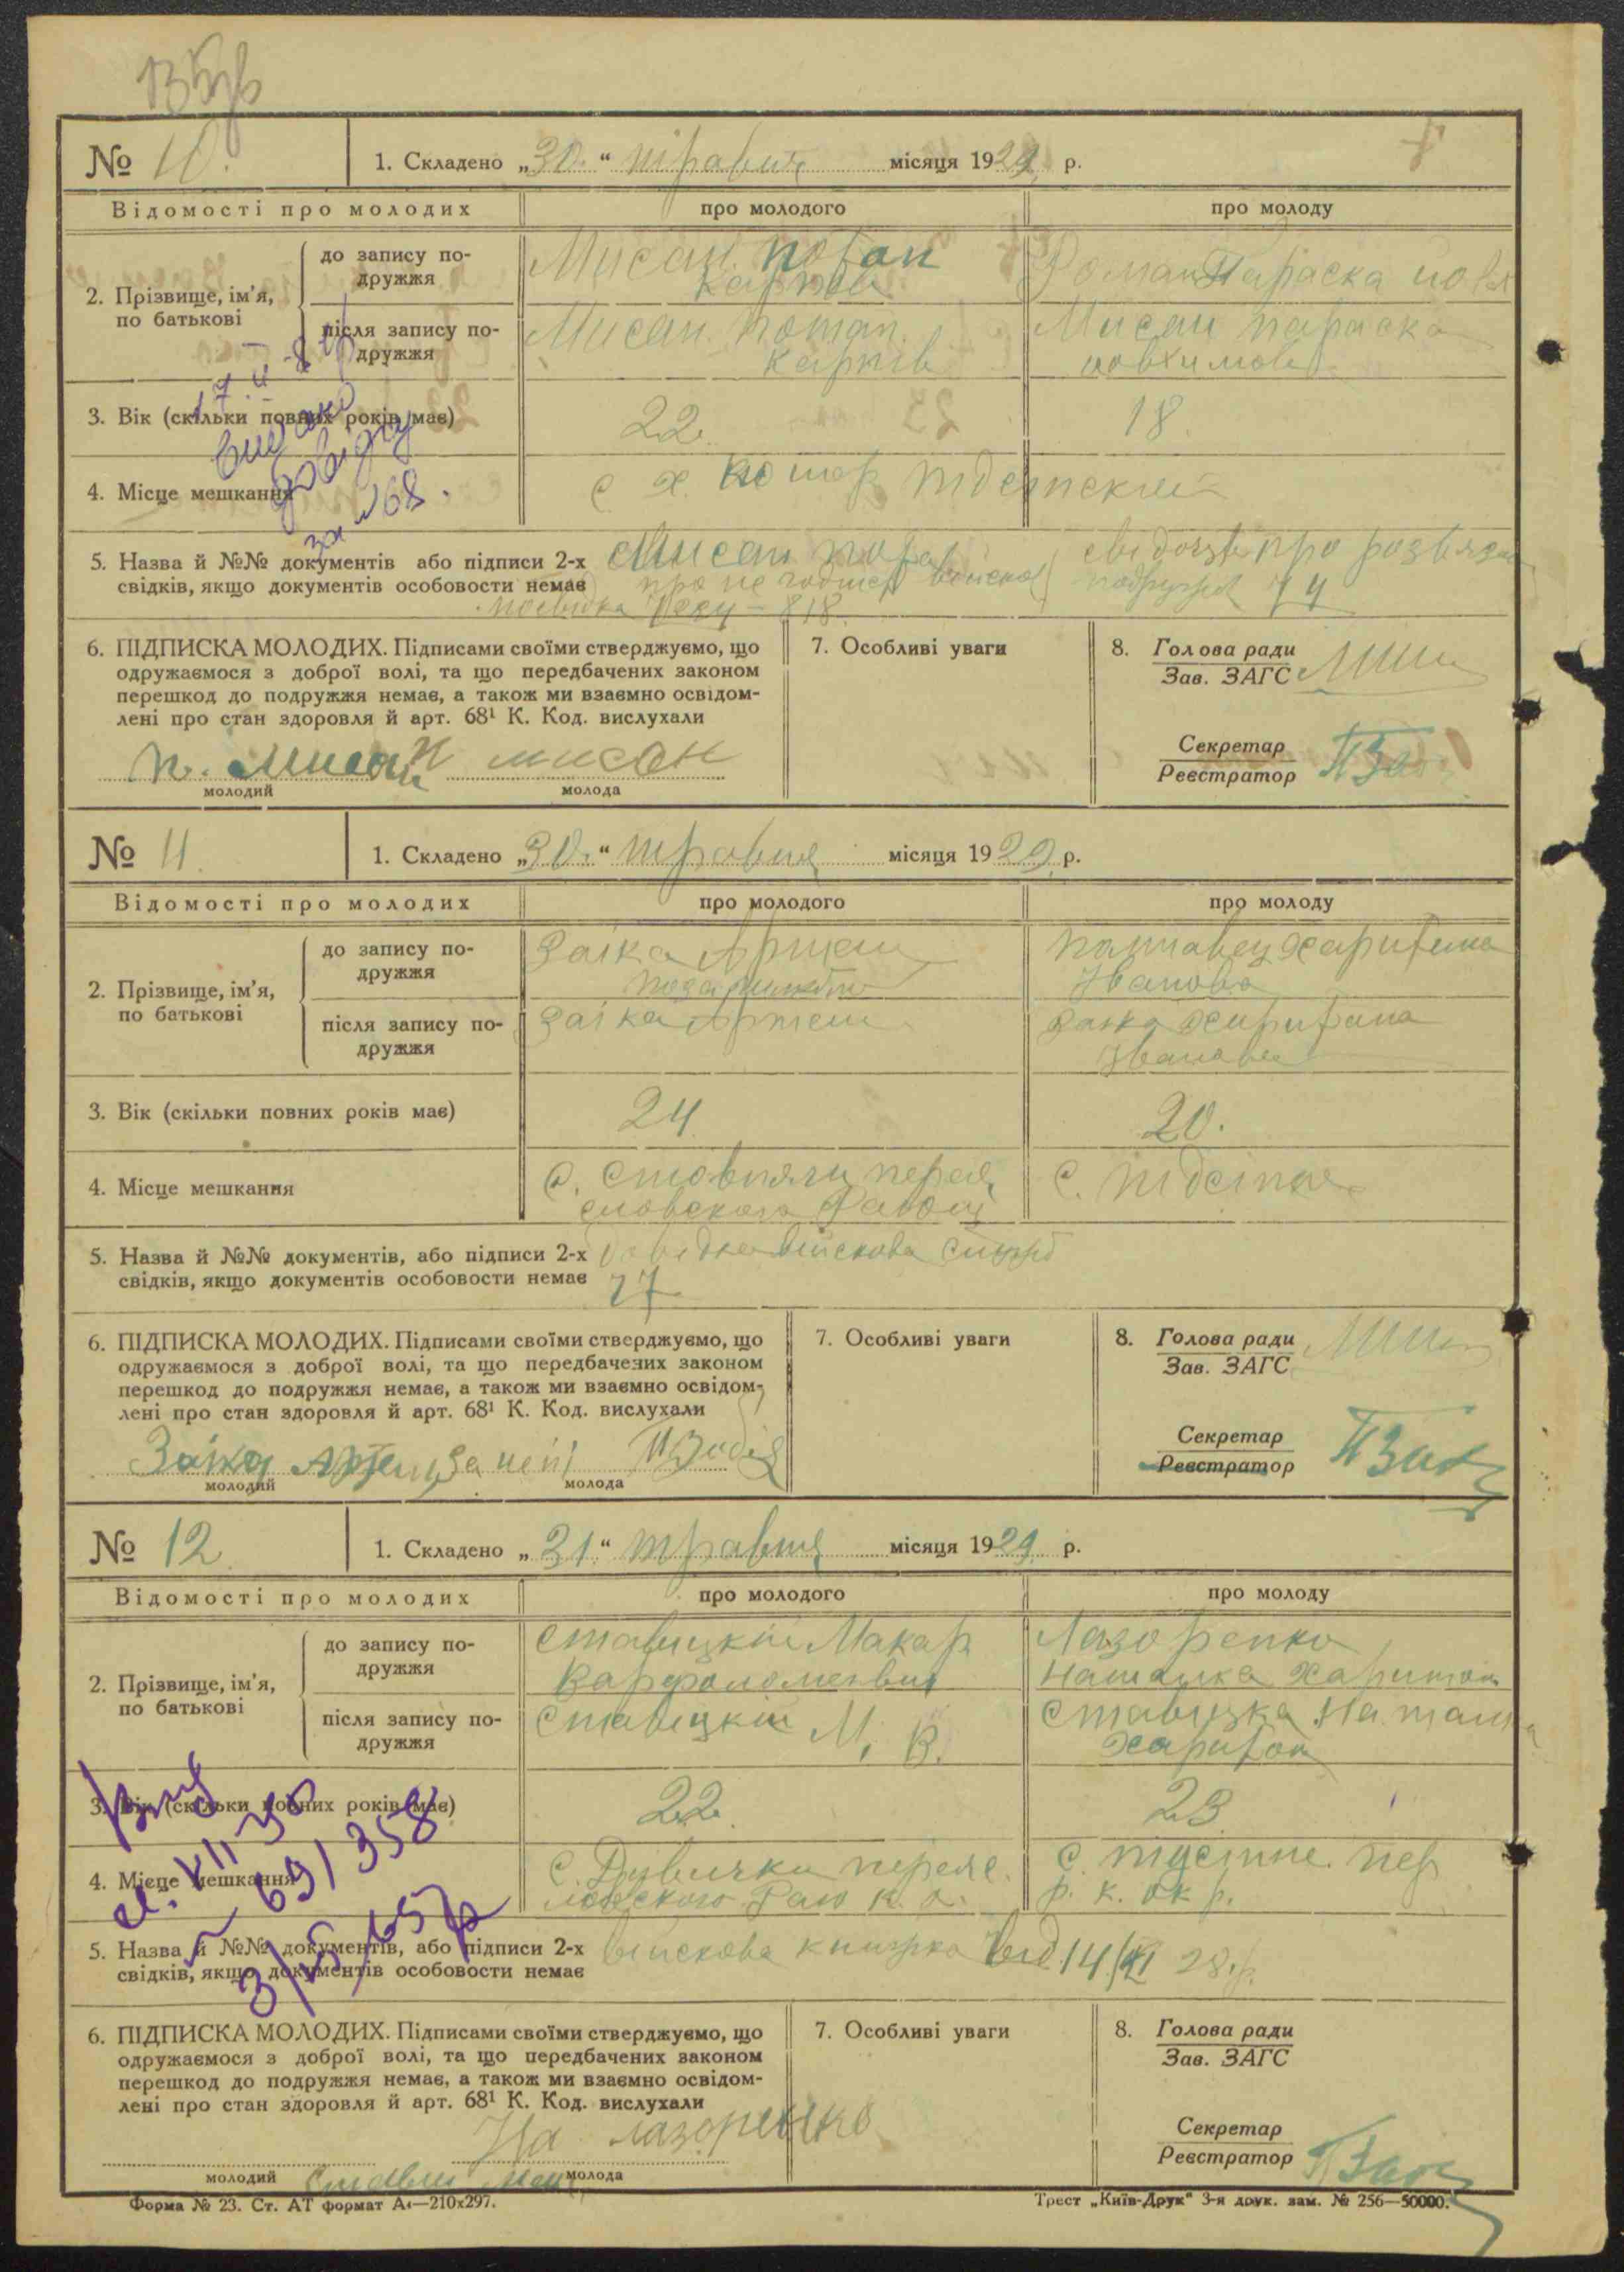 № 10. 1. Складено „30.“ травня місяця 1929 р.
Відомості про молодих про молодого про молоду
2. Прізвище, ім'я, по батькові
до запису подружжя
Мисан Потап Карпов
Роман Параска
після запису подружжя
Мисан Потап Карпів
Мисан Параска
3. Вік (скільки повних років має) 22. 18.
4. Місце мешкання
17.
видано
довідку
за 168.
5. Назва й №№ документів або підписи 2-х
свідків, якщо документів особовости немає
Мисан
про не
посвідка 818
про розвязан
74
6. ПІДПИСКА МОЛОДИХ. Підписами своїми стверджуємо, що
одружаємося з доброї волі, та що передбачених законом
перешкод до подружжя немає, а також ми взаємно освідом-
лені про стан здоровля й арт. 68¹ К. Код. вислухали
П. Мисан мисан
молодий молода
7. Особливі уваги
8. Голова ради
Зав. ЗАГС
Секретар
Реєстратор
№ 11. 1. Складено „30.“ травня місяця 1929 р.
Відомості про молодих про молодого про молоду
2. Прізвище, ім'я, по батькові
до запису подружжя
Заіка Артем
Харитина
Іванова
після запису подружжя
Заіка Артем
Заіка Харитина
Іванова
3. Вік (скільки повних років має) 24 20.
4. Місце мешкання
с. Стовпяги перея
словского Району
с. Підсінне
5. Назва й №№ документів, або підписи 2-х
свідків, якщо документів особовости немає
Довідка війскова
27
6. ПІДПИСКА МОЛОДИХ. Підписами своїми стверджуємо, що
одружаємося з доброї волі, та що передбачених законом
перешкод до подружжя немає, а також ми взаємно освідом-
лені про стан здоровля й арт. 68¹ К. Код. вислухали
Заіка Артем За неї
молодий молода
7. Особливі уваги
8. Голова ради
Зав. ЗАГС
Секретар
Реєстратор
№ 12 1. Складено „31.“ травня місяця 1929 р.
Відомості про молодих про молодого про молоду
2. Прізвище, ім'я, по батькові
до запису подружжя
Ставицкій Макар
Варфоломеевич
Лазоренко
Наталка Харитон
після запису подружжя
Ставицкій М. В.
Ставицка Наталка
Харитон
3. Вік (скільки повних років має) 22. 23.
4. Місце мешкання
с. Дівички переяс
ловского Раю К. о.
с. пер
р. К. окр.
5. Назва й №№ документів, або підписи 2-х
свідків, якщо документів особовости немає
війскова книжка від 14/XI 28 р.
6. ПІДПИСКА МОЛОДИХ. Підписами своїми стверджуємо, що
одружаємося з доброї волі, та що передбачених законом
перешкод до подружжя немає, а також ми взаємно освідом-
лені про стан здоровля й арт. 68¹ К. Код. вислухали
На лазоренко
молодий молода
7. Особливі уваги
8. Голова ради
Зав. ЗАГС
Секретар
Реєстратор
Форма № 23. Ст. АТ формат А4—210х297.
Трест „Київ-Друк“ 3-я друк. зам. № 256—50000.